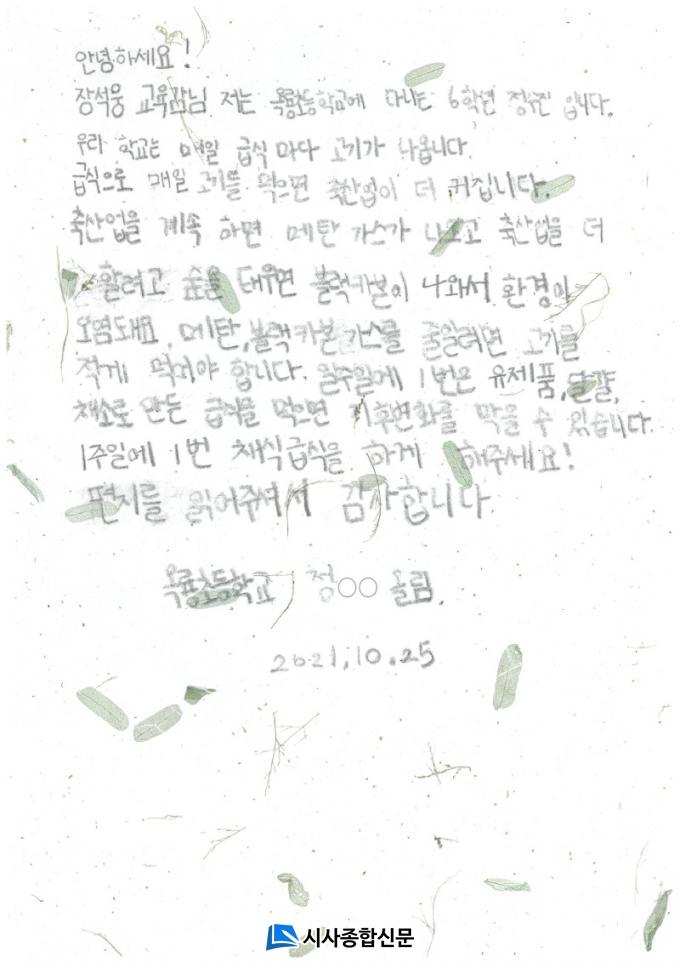 안녕하세요!
장석웅 교육감님 저는 옥룡초등학교에 다니는 6학년 정수진 입니다.
우리 학교는 매일 급식 마다 고기가 나옵니다.
급식으로 매일 고기를 먹으면 축산업이 더 커집니다.
축산업을 계속 하면 메탄 가스가 나오고 축산업을 더
할려고 숲을 태우면 블랙카본이 나와서 환경이
오염돼요. 메탄,블랙카본 가스를 줄일려면 고기를
적게 먹어야 합니다. 일주일에 1번은 유제품,달걀,
채소로 만든 급식을 먹으면 기후변화를 막을 수 있습니다.
1주일에 1번 채식급식을 하게 해주세요!
편지를 읽어주셔서 감사합니다
옥룡초등학교 정○○ 올림.
2021.10.25
시사종합신문